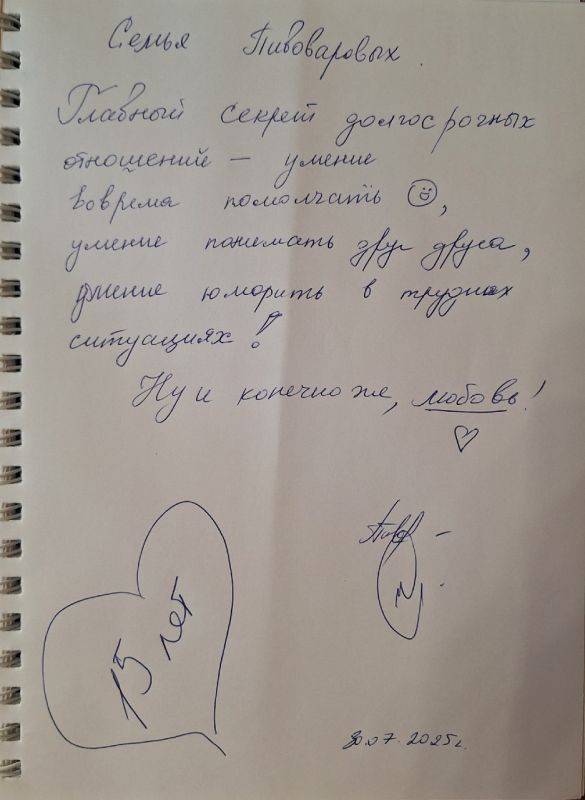 Семья Пивоваровых.
Главный секрет долгосрочных
отношений — умение
вовремя помолчать 😃,
умение понимать друг друга,
умение юморить в трудных
ситуациях!
Ну и конечно же, любовь!
♡
15 лет
30.07.2025г.